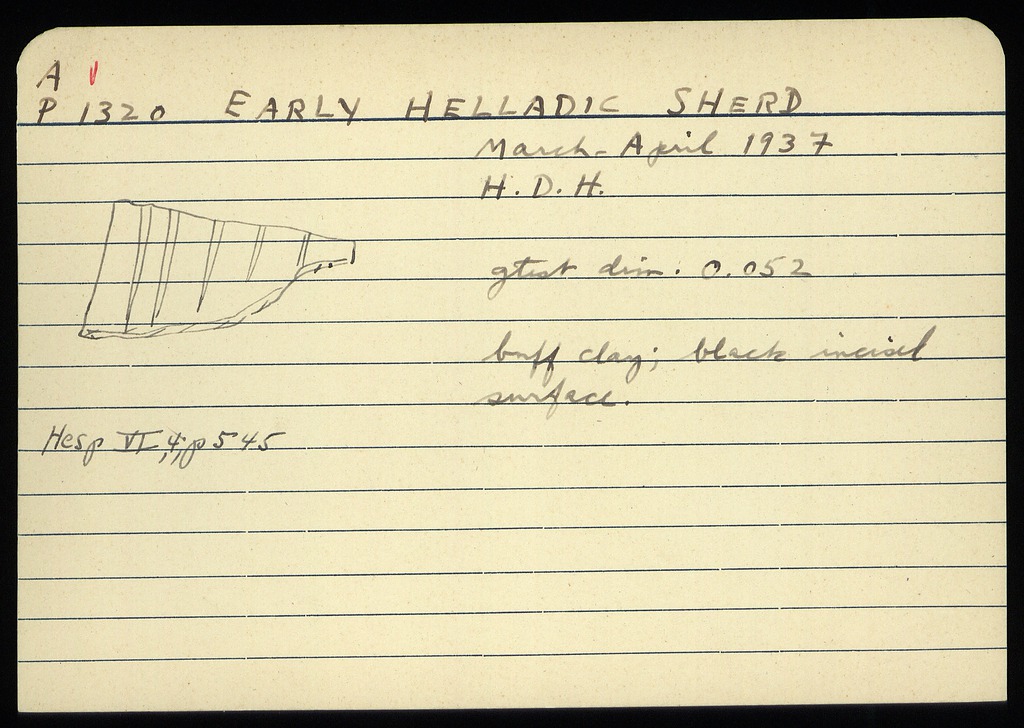 A
P 1320 EARLY HELLADIC SHERD
March-April 1937
H. D. H.
gtest dim. 0.052
buff clay; black incised
surface.
Hesp VI, 4, p 545